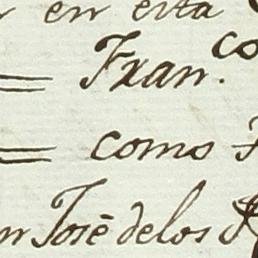 en esta
= Fran.co
= como
Josē delos